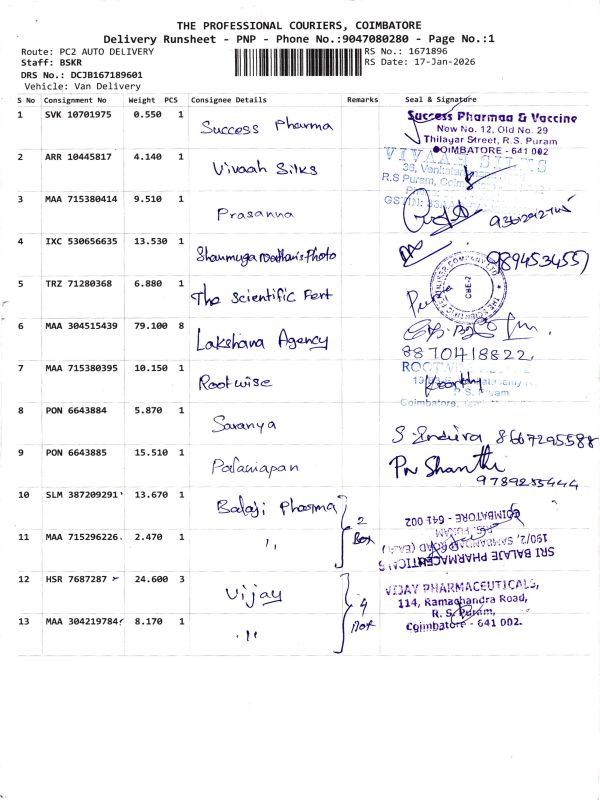 THE PROFESSIONAL COURIERS, COIMBATORE
Delivery Runsheet - PNP - Phone No.:9047080280 - Page No.:1
Route: PC2 AUTO DELIVERY
Staff: BSKR
DRS No.: DCJB167189601
Vehicle: Van Delivery
RS No.: 1671896
RS Date: 17-Jan-2026
S No Consignment No Weight PCS Consignee Details Remarks Seal & Signature
1 SVK 10701975 0.550 1 Success Pharma
Success Pharmaa & Vaccine
New No. 12, Old No. 29
Thilagar Street, R.S. Puram
COIMBATORE - 641 002
2 ARR 10445817 4.140 1 Vivaah Silks
VIVAAH SILKS
R.S Puram,
3 MAA 715380414 9.510 1 Prasanna
4 IXC 530656635 13.530 1
9894534557
5 TRZ 71280368 6.880 1 The Scientific Fert
CBE-2
6 MAA 304515439 79.100 8 Lakshana Agency
8870418822,
7 MAA 715380395 10.150 1 Rootwise
R.S. Puram
Coimbatore.
8 PON 6643884 5.870 1 Saranya
S. Indira 8667295588
9 PON 6643885 15.510 1 Palaniapan
Shanthi
9789255444
10 SLM 387209291 13.670 1 Balaji Pharma
2 Box
11 MAA 715296226 2.470 1 "
SRI BALAJE PHARMACEUTICALS
190/2, SAMBANDAM ROAD (EAST)
R.S. PURAM
COIMBATORE - 641 002
12 HSR 7687287 24.600 3 Vijay
4 Box
VIJAY PHARMACEUTICALS,
114, Ramachandra Road,
R. S. Puram,
Coimbatore - 641 002.
13 MAA 304219784 8.170 1 "